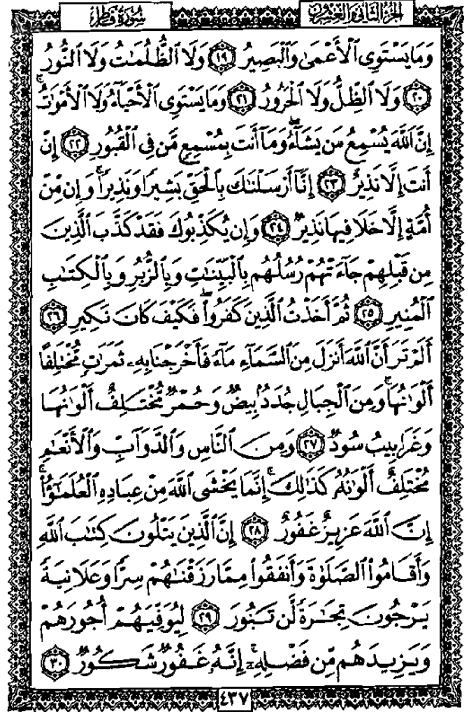 سُورَةُ فَاطِرٍ
الجُزءُ الثَّانِي وَالعِشرُونَ
وَمَا يَسْتَوِى ٱلْأَعْمَىٰ وَٱلْبَصِيرُ ١٩ وَلَا ٱلظُّلُمَٰتُ وَلَا ٱلنُّورُ
٢٠ وَلَا ٱلظِّلُّ وَلَا ٱلْحَرُورُ ٢١ وَمَا يَسْتَوِى ٱلْأَحْيَآءُ وَلَا ٱلْأَمْوَٰتُ ۚ
إِنَّ ٱللَّهَ يُسْمِعُ مَن يَشَآءُ ۖ وَمَآ أَنتَ بِمُسْمِعٍ مَّن فِى ٱلْقُبُورِ ٢٢ إِنْ
أَنتَ إِلَّا نَذِيرٌ ٢٣ إِنَّآ أَرْسَلْنَٰكَ بِٱلْحَقِّ بَشِيرًا وَنَذِيرًا ۚ وَإِن مِّنْ
أُمَّةٍ إِلَّا خَلَا فِيهَا نَذِيرٌ ٢٤ وَإِن يُكَذِّبُوكَ فَقَدْ كَذَّبَ ٱلَّذِينَ
مِن قَبْلِهِمْ جَآءَتْهُمْ رُسُلُهُم بِٱلْبَيِّنَٰتِ وَبِٱلزُّبُرِ وَبِٱلْكِتَٰبِ
ٱلْمُنِيرِ ٢٥ ثُمَّ أَخَذْتُ ٱلَّذِينَ كَفَرُوا۟ ۖ فَكَيْفَ كَانَ نَكِيرِ ٢٦
أَلَمْ تَرَ أَنَّ ٱللَّهَ أَنزَلَ مِنَ ٱلسَّمَآءِ مَآءً فَأَخْرَجْنَا بِهِۦ ثَمَرَٰتٍ مُّخْتَلِفًا
أَلْوَٰنُهَا ۚ وَمِنَ ٱلْجِبَالِ جُدَدٌۢ بِيضٌ وَحُمْرٌ مُّخْتَلِفٌ أَلْوَٰنُهَا
وَغَرَابِيبُ سُودٌ ٢٧ وَمِنَ ٱلنَّاسِ وَٱلدَّوَآبِّ وَٱلْأَنْعَٰمِ
مُخْتَلِفٌ أَلْوَٰنُهُۥ كَذَٰلِكَ ۗ إِنَّمَا يَخْشَى ٱللَّهَ مِنْ عِبَادِهِ ٱلْعُلَمَٰٓؤُا۟ ۗ
إِنَّ ٱللَّهَ عَزِيزٌ غَفُورٌ ٢٨ إِنَّ ٱلَّذِينَ يَتْلُونَ كِتَٰبَ ٱللَّهِ
وَأَقَامُوا۟ ٱلصَّلَوٰةَ وَأَنفَقُوا۟ مِمَّا رَزَقْنَٰهُمْ سِرًّا وَعَلَانِيَةً
يَرْجُونَ تِجَٰرَةً لَّن تَبُورَ ٢٩ لِيُوَفِّيَهُمْ أُجُورَهُمْ
وَيَزِيدَهُم مِّن فَضْلِهِۦٓ ۚ إِنَّهُۥ غَفُورٌ شَكُورٌ ٣٠
٤٣٧